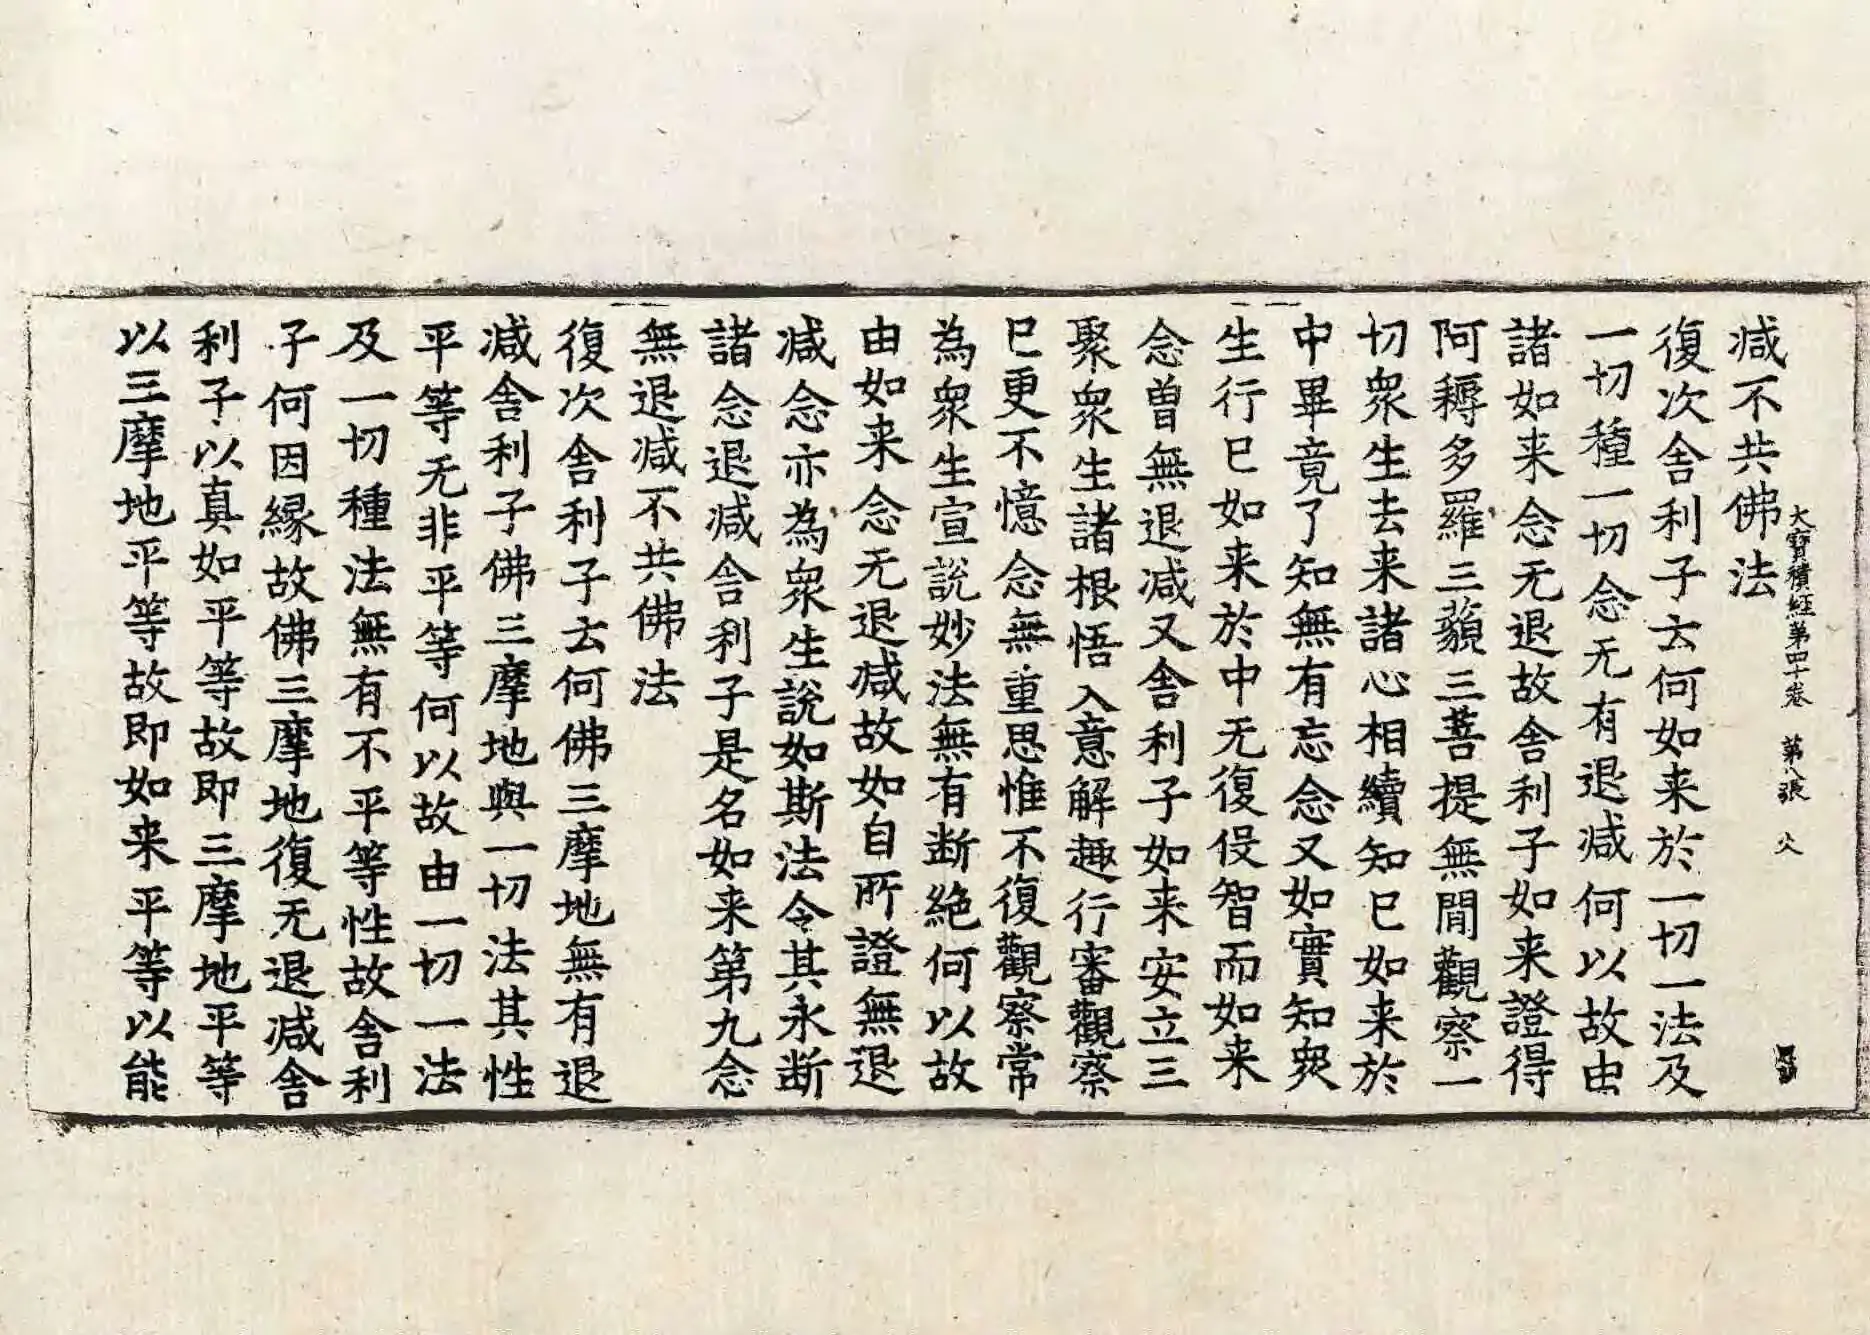 大寶積經第四十卷　第八張　火
減不共佛法
復次舍利子云何如来於一切一法及
一切種一切念无有退減何以故由
諸如来念无退故舍利子如来證得
阿耨多羅三藐三菩提無間觀察一
切衆生去来諸心相續知已如来於
中畢竟了知無有忘念又如實知衆
生行已如来於中无復役智而如来
念曾無退減又舍利子如来安立三
聚衆生諸根悟入意解趣行審觀察
已更不憶念無重思惟不復觀察常
為衆生宣說妙法無有断絶何以故
由如来念无退減故如自所證無退
減念亦為衆生說如斯法令其永断
諸念退減舍利子是名如来第九念
無退減不共佛法
復次舍利子云何佛三摩地無有退
減舍利子佛三摩地與一切法其性
平等无非平等何以故由一切一法
及一切種法無有不平等性故舍利
子何因緣故佛三摩地復无退減舍
利子以真如平等故即三摩地平等
以三摩地平等故即如来平等以能